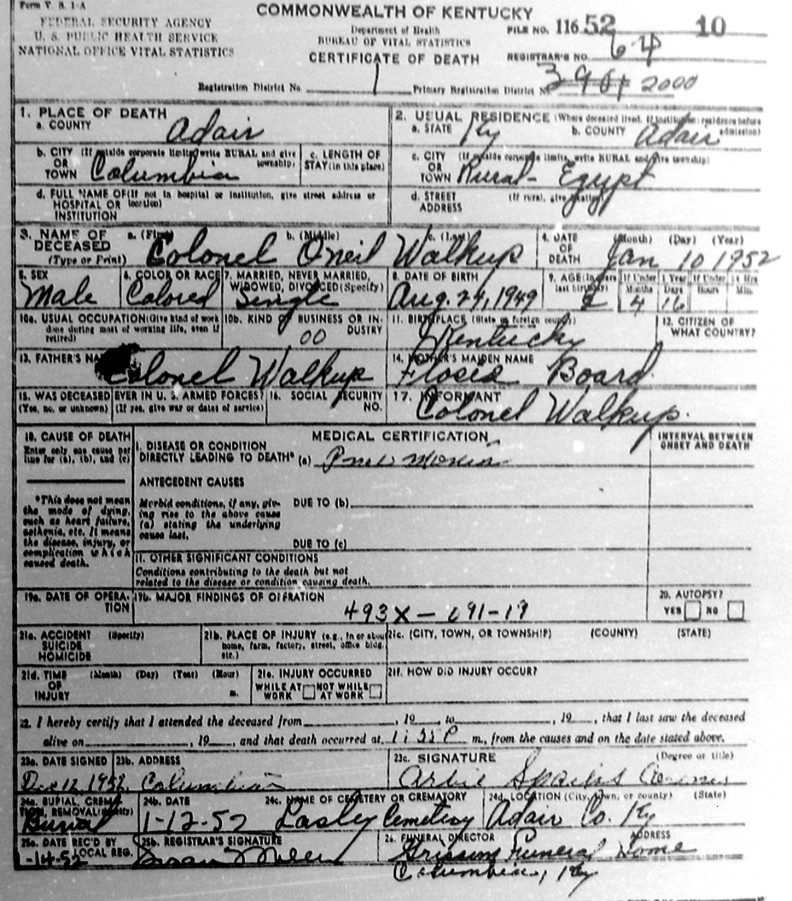 Form V. S. 1-A
COMMONWEALTH OF KENTUCKY
FEDERAL SECURITY AGENCY
U. S. PUBLIC HEALTH SERVICE
NATIONAL OFFICE VITAL STATISTICS
Department of Health
BUREAU OF VITAL STATISTICS
CERTIFICATE OF DEATH
FILE NO. 116 52 10
REGISTRAR'S NO. 64
Registration District No. 1 Primary Registration District No. 3901 2000
1. PLACE OF DEATH
a. COUNTY Adair
2. USUAL RESIDENCE (Where deceased lived. If institution: residence before admission)
a. STATE Ky b. COUNTY Adair
b. CITY (If outside corporate limits, write RURAL and give township) OR TOWN Columbia
c. LENGTH OF STAY (in this place)
c. CITY (If outside corporate limits, write RURAL and give township) OR TOWN Rural- Egypt
d. FULL NAME OF (If not in hospital or institution, give street address or location) HOSPITAL OR INSTITUTION
d. STREET ADDRESS (If rural, give location)
3. NAME OF DECEASED (Type or Print) a. (First) b. (Middle) c. (Last)
Colonel Oneil Walkup
4. DATE OF DEATH (Month) (Day) (Year)
Jan 10 1952
5. SEX Male
6. COLOR OR RACE Colored
7. MARRIED, NEVER MARRIED, WIDOWED, DIVORCED (Specify) Single
8. DATE OF BIRTH Aug. 24, 1949
9. AGE (In years last birthday) 2 If Under 1 Year Months 4 Days 16 If Under 24 Hrs Hours Min.
10a. USUAL OCCUPATION (Give kind of work done during most of working life, even if retired)
10b. KIND OF BUSINESS OR INDUSTRY 00
11. BIRTHPLACE (State or foreign country) Kentucky
12. CITIZEN OF WHAT COUNTRY?
13. FATHER'S NAME Colonel Walkup
14. MOTHER'S MAIDEN NAME Board
15. WAS DECEASED EVER IN U. S. ARMED FORCES? (Yes, no, or unknown) (If yes, give war or dates of service)
16. SOCIAL SECURITY NO.
17. INFORMANT Colonel Walkup.
18. CAUSE OF DEATH
Enter only one cause per line for (a), (b), and (c)
MEDICAL CERTIFICATION
INTERVAL BETWEEN ONSET AND DEATH
I. DISEASE OR CONDITION DIRECTLY LEADING TO DEATH* (a)
*This does not mean the mode of dying, such as heart failure, asthenia, etc. It means the disease, injury, or complication which caused death.
ANTECEDENT CAUSES
Morbid conditions, if any, giving rise to the above cause (a) stating the underlying cause last.
DUE TO (b)
DUE TO (c)
11. OTHER SIGNIFICANT CONDITIONS
Conditions contributing to the death but not related to the disease or condition causing death.
19a. DATE OF OPERATION
19b. MAJOR FINDINGS OF OPERATION
493X - 091-19
20. AUTOPSY? YES NO
21a. ACCIDENT SUICIDE HOMICIDE (Specify)
21b. PLACE OF INJURY (e.g., in or about home, farm, factory, street, office bldg. etc.)
21c. (CITY, TOWN, OR TOWNSHIP) (COUNTY) (STATE)
21d. TIME OF INJURY (Month) (Day) (Year) (Hour) m.
21e. INJURY OCCURRED WHILE AT WORK NOT WHILE AT WORK
21f. HOW DID INJURY OCCUR?
22. I hereby certify that I attended the deceased from , 19 to , 19 , that I last saw the deceased
alive on , 19 , and that death occurred at 1:55P m., from the causes and on the date stated above.
23a. DATE SIGNED
23b. ADDRESS Columbia
23c. SIGNATURE (Degree or title)
24a. BURIAL, CREMATION, REMOVAL (Specify) Burial
24b. DATE 1-12-52
24c. NAME OF CEMETERY OR CREMATORY Lasley Cemetery
24d. LOCATION (City, town, or county) (State) Adair Co. Ky
25a. DATE REC'D BY LOCAL REG. 1-14-52
25b. REGISTRAR'S SIGNATURE
26. FUNERAL DIRECTOR ADDRESS
Grissom Funeral Home
Columbia, Ky